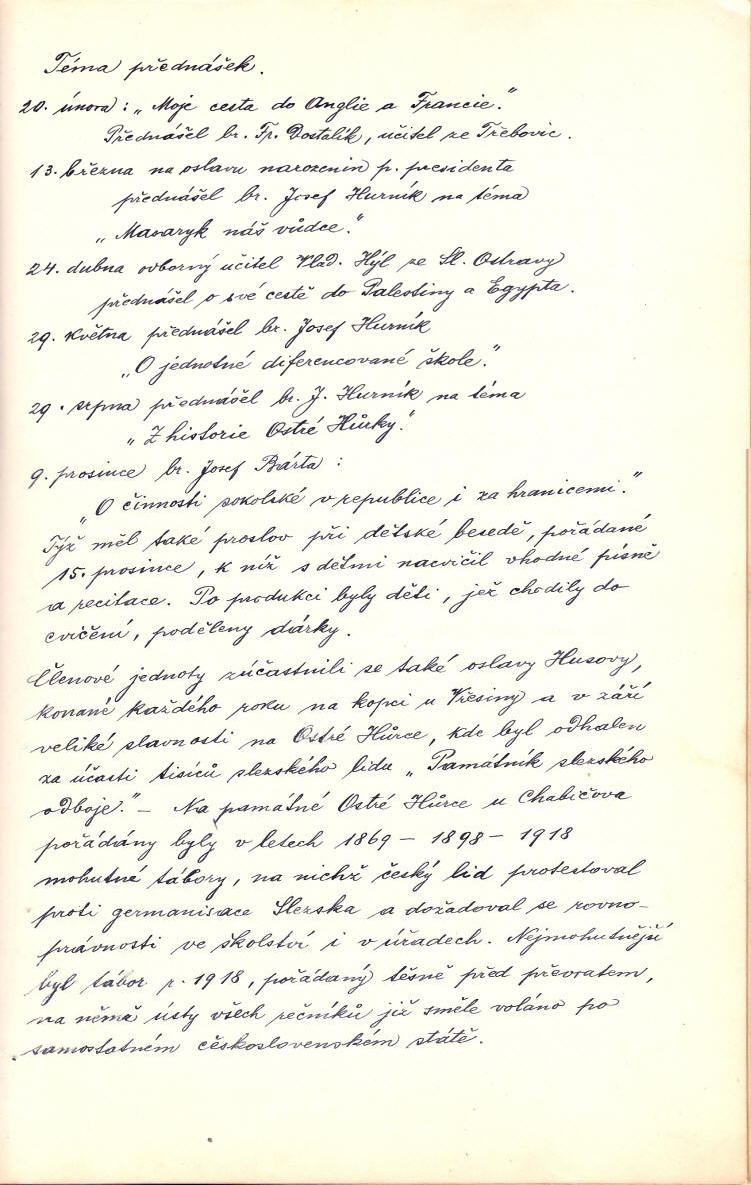 Téma přednášek.
20. února: „Moje cesta do Anglie a Francie."
Přednášel br. Fr. Dostalík, učitel ze Třebovic.
13. března na oslavu narozenin p. presidenta
přednášel br. Josef Hurník na téma
„Masaryk náš vůdce."
24. dubna odborný učitel Vlad. Hýl ze Sl. Ostravy
přednášel o své cestě do Palestiny a Egypta.
29. května přednášel br. Josef Hurník
„O jednotné diferencované škole."
29. srpna přednášel br. J. Hurník na téma
„Z historie Ostré Hůrky."
9. prosince br. Josef Bárta:
„O činnosti sokolské v republice i za hranicemi."
Týž měl také proslov při dětské besedě, pořádané
15. prosince, k níž s dětmi nacvičil vhodné písně
a recitace. Po produkci byly děti, jež chodily do
cvičení, poděleny dárky.
Členové jednoty zúčastnili se také oslavy Husovy,
konané každého roku na kopci u Vřesiny a v září
veliké slavnosti na Ostré Hůrce, kde byl odhalen
za účasti tisíců slezského lidu „Památník slezského
odboje." – Na památné Ostré Hůrce u Chabičova
pořádány byly v letech 1869 – 1898 – 1918
mohutné tábory, na nichž český lid protestoval
proti germanisace Slezska a dožadoval se rovno-
právnosti ve školství i v úřadech. Nejmohutnější
byl tábor r. 1918, pořádaný těsně před převratem,
na němž ústy všech řečníků již směle voláno po
samostatném československém státě.